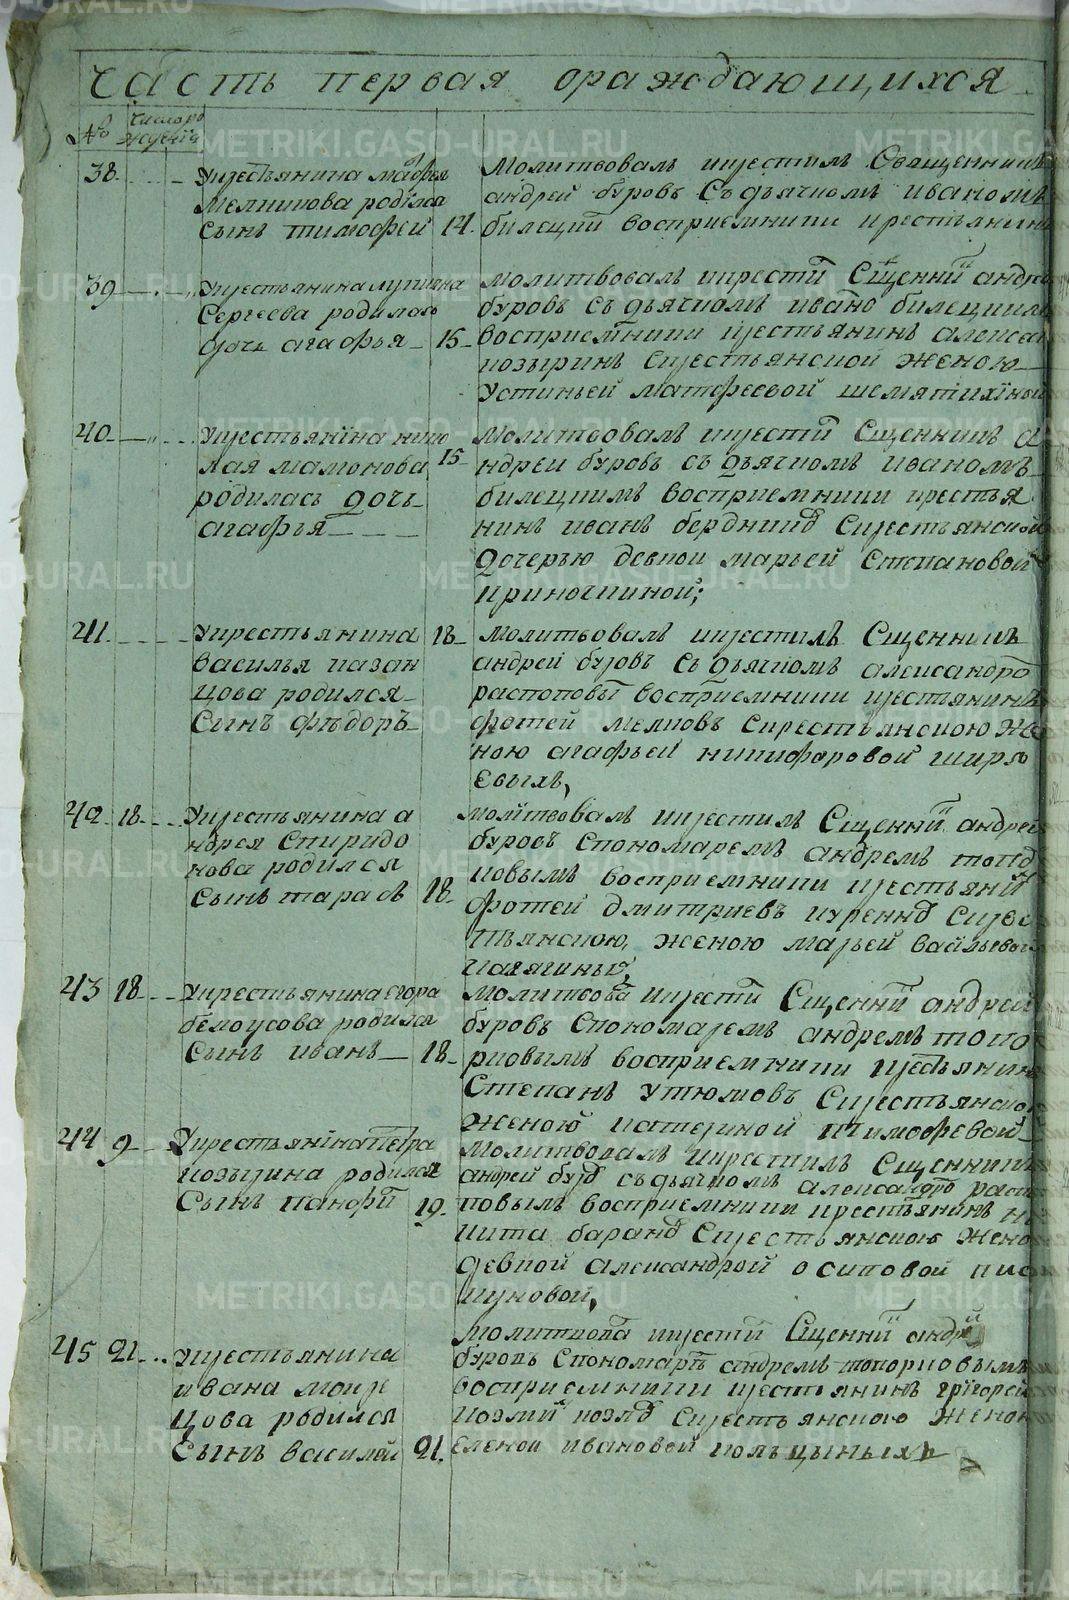 Часть первая ораждающихся
№ число ро
ждения
38. Укрестьянина Мафея
Мелникова родился
сынъ тимофей 14.
Молитвовалъ икрестилъ Священникъ
андрей буровъ Съдьячкомъ иваномъ
билецкий восприемники крестьянинъ
39 Укрестьянина лупияна
Сергеева родилась
дочь агафья 15
молитвовалъ икрести Сщенни андре
буровъ съ дьячкомъ ивано билецкимъ
восприемники кресьянинъ алекса
козыринъ скрестьянской женою
Устиньей матфеевой шемятихиной
40 Укрестьянина нико
лая мамонова 15
родилась дочь
агафья
молитвовалъ икрести Сщенникъ а
ндреи буровъ съ дьячкомъ иваномъ
билецкимъ восприемники крестья
нинъ иванъ бердни скрестьянской
дочерью девкой марьей Степановой
41 Укрестьянина 18
василья казан
цова родился
сынъ фѣдоръ
молитвовалъ икрестилъ Сщенникъ
андрей буровъ съ дьячкомъ александро
распоповы восприемники кресьянинъ
фотей мелковъ скрестьянскою же
ною агафьей никифоровой ширя
евыхъ,
42 18 Укрестьянина а
ндрея Спиридо
нова родился
сынъ тарасъ 18
молитвовалъ икрестилъ Сщенни андрей
буровъ спономаремъ андремъ топо
ковымъ восприемники кресьяни
фотей дмитриевъ скрес
тьянскою, женою марьей васильевой
43 18 Укрестьянина егора
белоусова родился
сынъ иванъ 18
молитвова икрести Сщенни андрей
буровъ спономаремъ андремъ топо
рковымъ восприемники кресьянин
Степанъ утюмовъ скрестьянско
женою катериной тимофевой
44 9 Укрестьянина петра
козырина родился
сынъ панфи 19.
молитвовалъ икрестилъ Сщенникъ
андрей буро съдьячкомъ александро расп
повымъ восприемники крестьянинъ ни
кита баранo скрестьянскою жено
девкой александрой осиповой пис
куновой,
45 21 Укрестьянина
ивана мокр
цова родился
сынъ василей 21.
молитвова икрести Сщенни андре
буровъ спономаръ андремъ топорковымъ
восприемники кресьянинъ григорей
скрестьянскою женою
еленой ивановой кольцыныхъ
METRIKI.GASO-URAL.RU